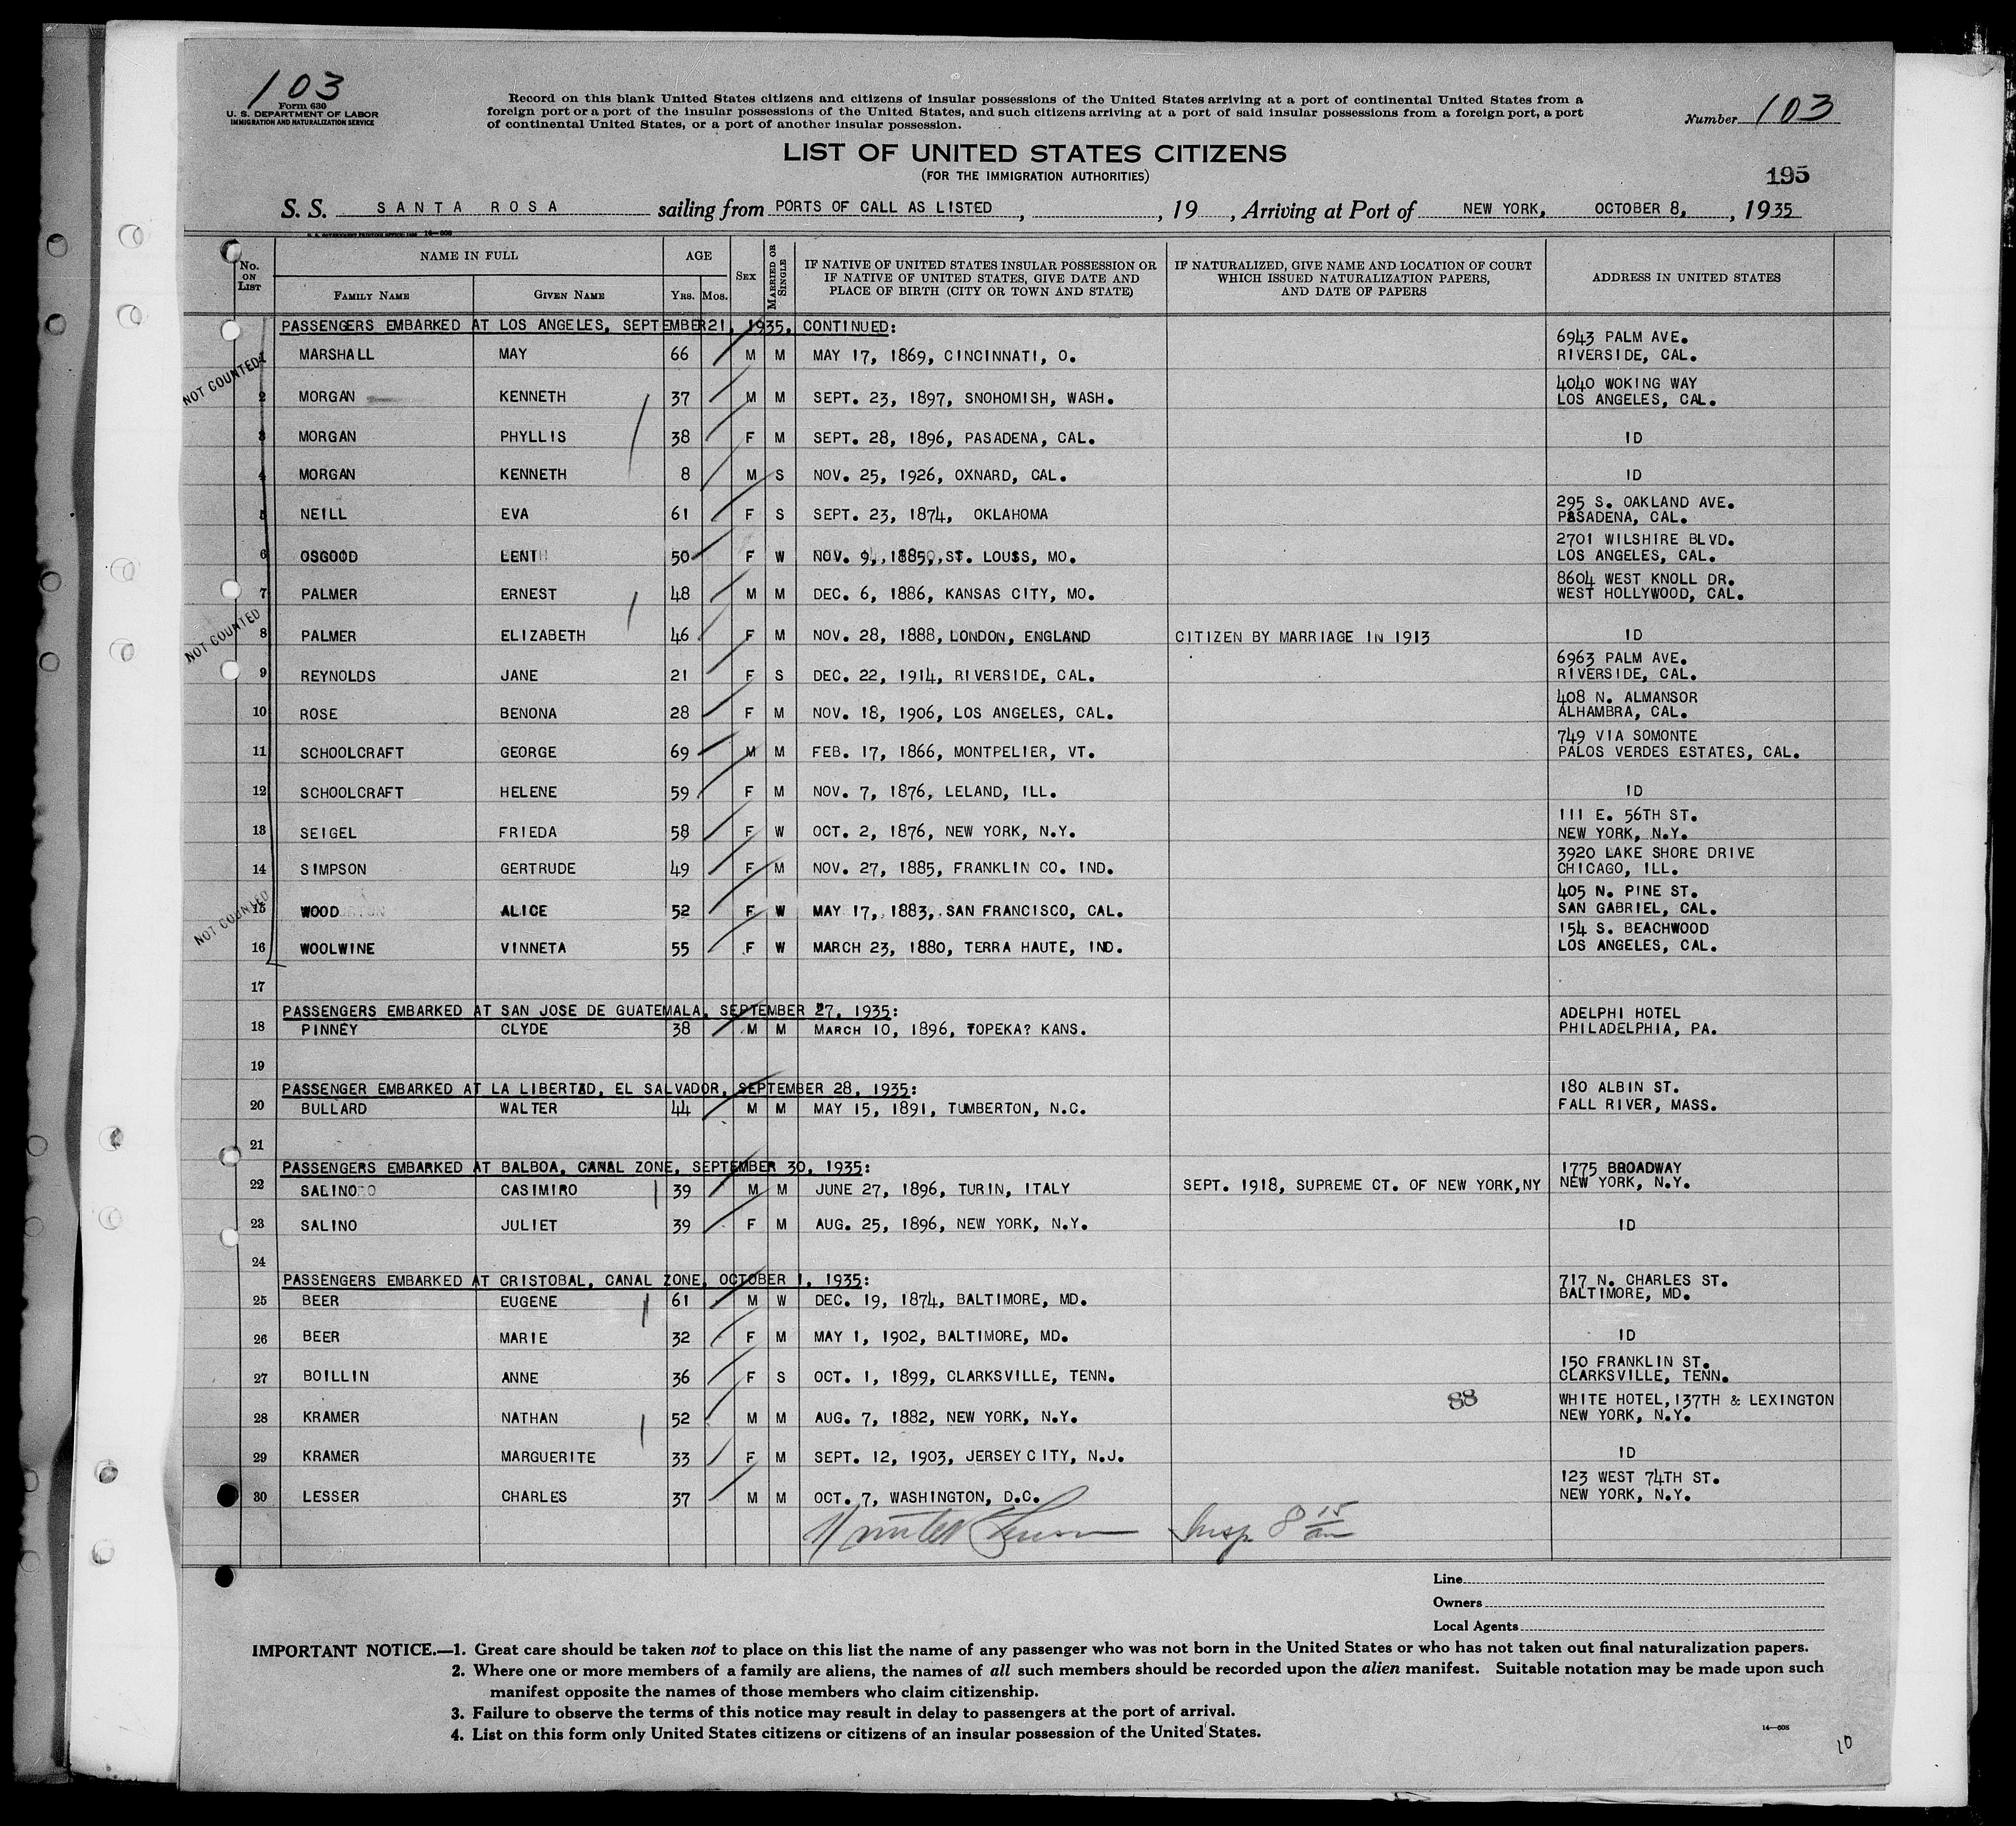 103
Form 630
U. S. DEPARTMENT OF LABOR
IMMIGRATION AND NATURALIZATION SERVICE
Record on this blank United States citizens and citizens of insular possessions of the United States arriving at a port of continental United States from a
foreign port or a port of the insular possessions of the United States, and such citizens arriving at a port of said insular possessions from a foreign port, a port
of continental United States, or a port of another insular possession.
Number 103
LIST OF UNITED STATES CITIZENS
(FOR THE IMMIGRATION AUTHORITIES)
195
S. S. SANTA ROSA sailing from PORTS OF CALL AS LISTED , , 19 , Arriving at Port of NEW YORK, OCTOBER 8, , 1935
No. ON LIST NAME IN FULL AGE SEX MARRIED OR SINGLE IF NATIVE OF UNITED STATES INSULAR POSSESSION OR IF NATIVE OF UNITED STATES, GIVE DATE AND PLACE OF BIRTH (CITY OR TOWN AND STATE) IF NATURALIZED, GIVE NAME AND LOCATION OF COURT WHICH ISSUED NATURALIZATION PAPERS, AND DATE OF PAPERS ADDRESS IN UNITED STATES
FAMILY NAME GIVEN NAME YRS. MOS.
PASSENGERS EMBARKED AT LOS ANGELES, SEPTEMBER 21, 1935, CONTINUED:
1 MARSHALL MAY 66 M M MAY 17, 1869, CINCINNATI, O. 6943 PALM AVE. RIVERSIDE, CAL.
NOT COUNTED
2 MORGAN KENNETH 37 M M SEPT. 23, 1897, SNOHOMISH, WASH. 4040 WOKING WAY LOS ANGELES, CAL.
3 MORGAN PHYLLIS 38 F M SEPT. 28, 1896, PASADENA, CAL. ID
4 MORGAN KENNETH 8 M S NOV. 25, 1926, OXNARD, CAL. ID
5 NEILL EVA 61 F S SEPT. 23, 1874, OKLAHOMA 295 S. OAKLAND AVE. PASADENA, CAL.
6 OSGOOD 50 F W NOV. 9, 1885, ST. LOUSS, MO. 2701 WILSHIRE BLVD. LOS ANGELES, CAL.
7 PALMER ERNEST 48 M M DEC. 6, 1886, KANSAS CITY, MO. 8604 WEST KNOLL DR. WEST HOLLYWOOD, CAL.
NOT COUNTED
8 PALMER ELIZABETH 46 F M NOV. 28, 1888, LONDON, ENGLAND CITIZEN BY MARRIAGE IN 1913 ID
9 REYNOLDS JANE 21 F S DEC. 22, 1914, RIVERSIDE, CAL. 6963 PALM AVE. RIVERSIDE, CAL.
10 ROSE BENONA 28 F M NOV. 18, 1906, LOS ANGELES, CAL. 408 N. ALMANSOR ALHAMBRA, CAL.
11 SCHOOLCRAFT GEORGE 69 M M FEB. 17, 1866, MONTPELIER, VT. 749 VIA SOMONTE PALOS VERDES ESTATES, CAL.
12 SCHOOLCRAFT HELENE 59 F M NOV. 7, 1876, LELAND, ILL. ID
13 SEIGEL FRIEDA 58 F W OCT. 2, 1876, NEW YORK, N.Y. 111 E. 56TH ST. NEW YORK, N.Y.
14 SIMPSON GERTRUDE 49 F M NOV. 27, 1885, FRANKLIN CO. IND. 3920 LAKE SHORE DRIVE CHICAGO, ILL.
NOT COUNTED
15 WOOD ALICE 52 F W MAY 17, 1883, SAN FRANCISCO, CAL. 405 N. PINE ST. SAN GABRIEL, CAL.
16 WOOLWINE VINNETA 55 F W MARCH 23, 1880, TERRA HAUTE, IND. 154 S. BEACHWOOD LOS ANGELES, CAL.
17
PASSENGERS EMBARKED AT SAN JOSE DE GUATEMALA, SEPTEMBER 27, 1935:
18 PINNEY CLYDE 38 M M MARCH 10, 1896, TOPEKA? KANS. ADELPHI HOTEL PHILADELPHIA, PA.
19
PASSENGER EMBARKED AT LA LIBERTAD, EL SALVADOR, SEPTEMBER 28, 1935:
20 BULLARD WALTER 44 M M MAY 15, 1891, TUMBERTON, N.C. 180 ALBIN ST. FALL RIVER, MASS.
21
PASSENGERS EMBARKED AT BALBOA, CANAL ZONE, SEPTEMBER 30, 1935:
22 SALINO CASIMIRO 39 M M JUNE 27, 1896, TURIN, ITALY SEPT. 1918, SUPREME CT. OF NEW YORK,NY 1775 BROADWAY NEW YORK, N.Y.
23 SALINO JULIET 39 F M AUG. 25, 1896, NEW YORK, N.Y. ID
24
PASSENGERS EMBARKED AT CRISTOBAL, CANAL ZONE, OCTOBER 1, 1935:
25 BEER EUGENE 61 M W DEC. 19, 1874, BALTIMORE, MD. 717 N. CHARLES ST. BALTIMORE, MD.
26 BEER MARIE 32 F M MAY 1, 1902, BALTIMORE, MD. ID
27 BOILLIN ANNE 36 F S OCT. 1, 1899, CLARKSVILLE, TENN. 150 FRANKLIN ST. CLARKSVILLE, TENN.
88
28 KRAMER NATHAN 52 M M AUG. 7, 1882, NEW YORK, N.Y. WHITE HOTEL, 137TH & LEXINGTON NEW YORK, N.Y.
29 KRAMER MARGUERITE 33 F M SEPT. 12, 1903, JERSEY CITY, N.J. ID
30 LESSER CHARLES 37 M M OCT. 7, WASHINGTON, D.C. 123 WEST 74TH ST. NEW YORK, N.Y.
Insp 8 15 am
Line
Owners
Local Agents
IMPORTANT NOTICE.—1. Great care should be taken not to place on this list the name of any passenger who was not born in the United States or who has not taken out final naturalization papers.
2. Where one or more members of a family are aliens, the names of all such members should be recorded upon the alien manifest. Suitable notation may be made upon such
manifest opposite the names of those members who claim citizenship.
3. Failure to observe the terms of this notice may result in delay to passengers at the port of arrival.
4. List on this form only United States citizens or citizens of an insular possession of the United States.
14—608
10